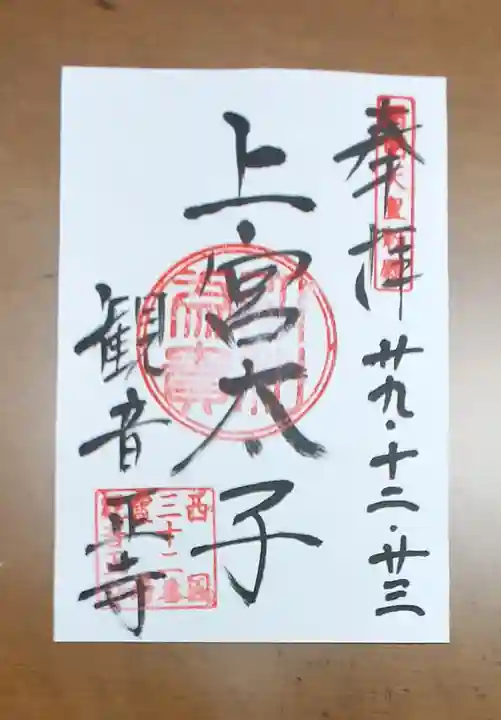 奉拝
廿九・十二・廿三
上宮太子
観音正寺
西国
三十二番